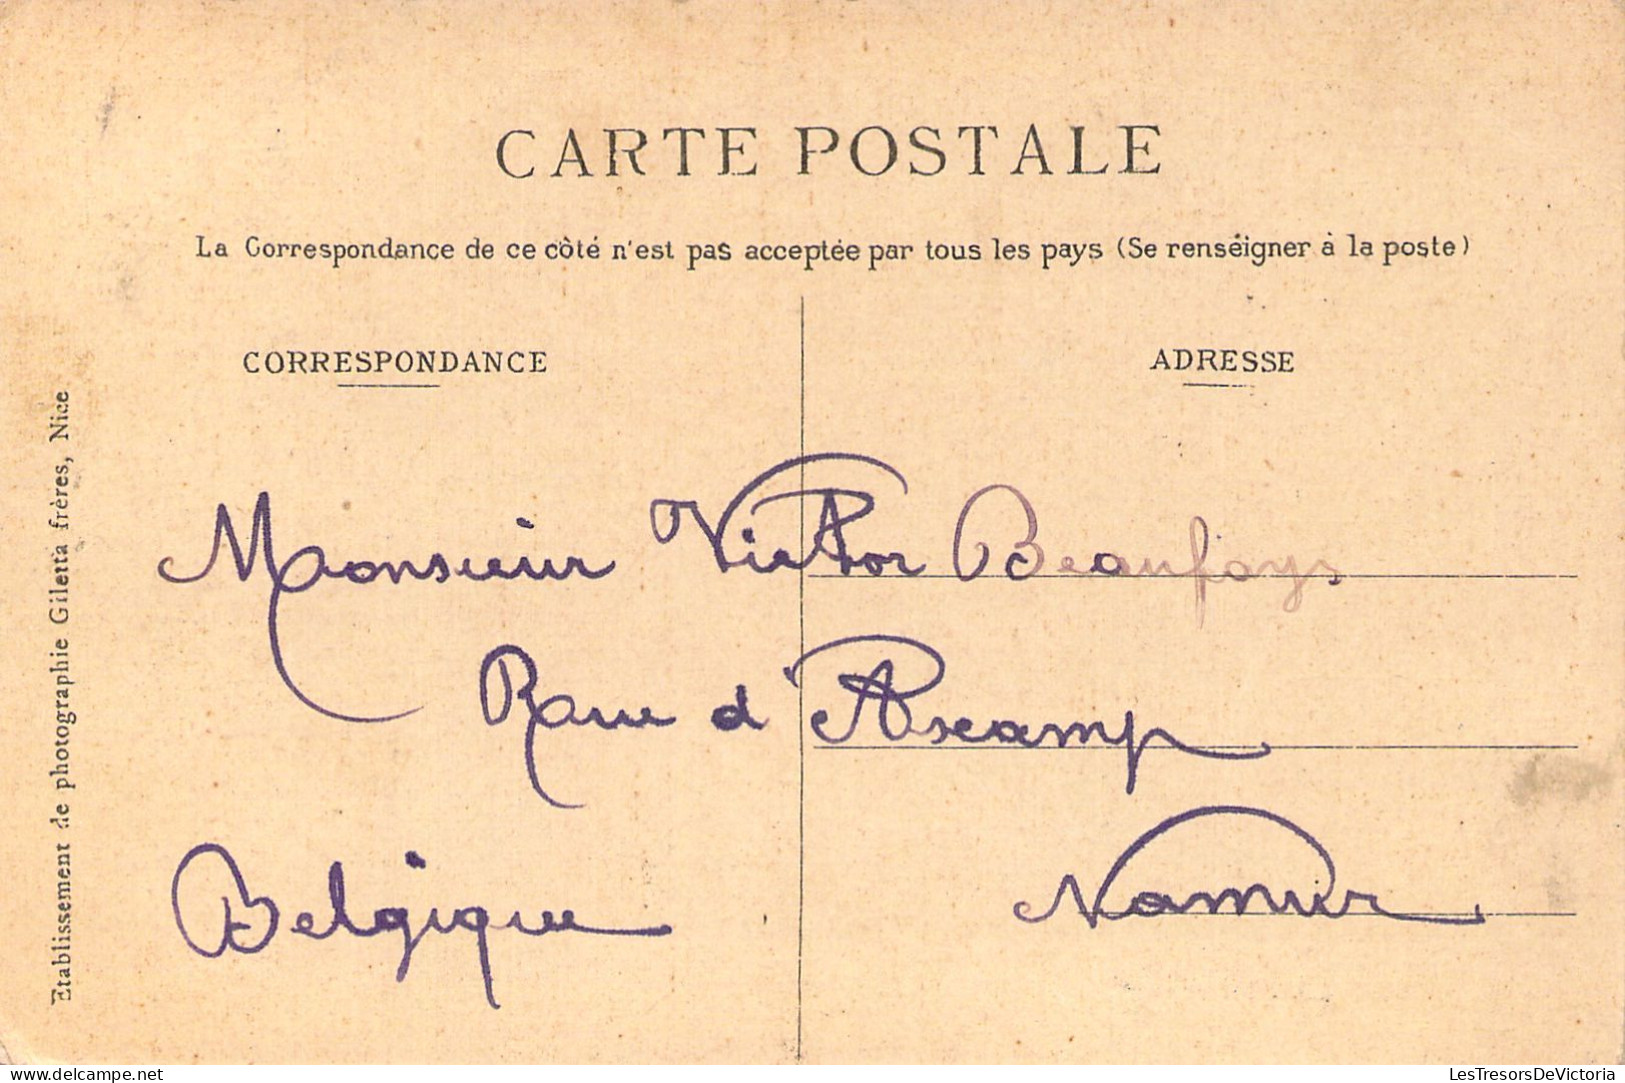 CARTE POSTALE
La Correspondance de ce côté n'est pas acceptée par tous les pays (Se renseigner à la poste)
CORRESPONDANCE
ADRESSE
Monsieur Victor Beaufays
Rue d'Axcamp
Namur
Belgique
Etablissement de photographie Giletta frères, Nice
delcampe.net
LesTresorsDeVictoria